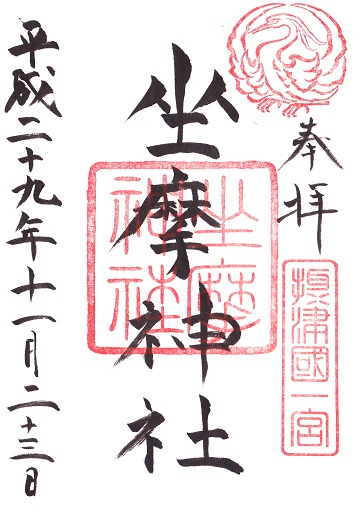 奉拝
摂津國一宮
坐摩神社
坐摩神社
平成二十九年十一月二十三日